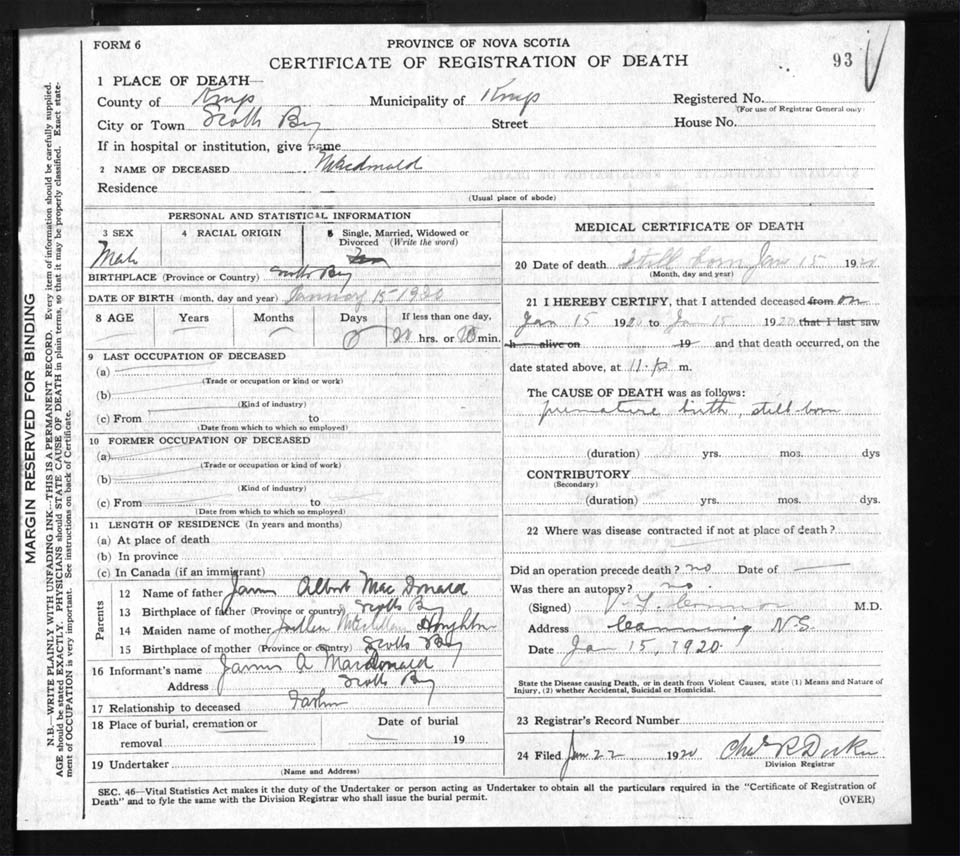 FORM 6
PROVINCE OF NOVA SCOTIA
CERTIFICATE OF REGISTRATION OF DEATH
93
1 PLACE OF DEATH—
County of Kings Municipality of Kings Registered No.
(For use of Registrar General only)
City or Town Scotts Bay Street House No.
If in hospital or institution, give name
2 NAME OF DECEASED Macdonald
Residence
(Usual place of abode)
PERSONAL AND STATISTICAL INFORMATION
3 SEX 4 RACIAL ORIGIN 5 Single, Married, Widowed or
Divorced (Write the word)
Male
BIRTHPLACE (Province or Country) Scotts Bay
DATE OF BIRTH (month, day and year) January 15 1920
8 AGE Years Months Days If less than one day,
hrs. or min.
9 LAST OCCUPATION OF DECEASED
(a)
(Trade or occupation or kind or work)
(b)
(Kind of industry)
(c) From to
(Date from which to which so employed)
10 FORMER OCCUPATION OF DECEASED
(a)
(Trade or occupation or kind of work)
(b)
(Kind of industry)
(c) From to
(Date from which to which so employed)
11 LENGTH OF RESIDENCE (In years and months)
(a) At place of death
(b) In province
(c) In Canada (if an immigrant)
Parents
12 Name of father James Albert MacDonald
13 Birthplace of father (Province or country) Scotts Bay
14 Maiden name of mother Houghton
15 Birthplace of mother (Province or country) Scotts Bay
16 Informant's name James A MacDonald
Address Scotts Bay
17 Relationship to deceased Father
18 Place of burial, cremation or Date of burial
removal 19
19 Undertaker
(Name and Address)
MEDICAL CERTIFICATE OF DEATH
20 Date of death Still born Jan 15 1920
(Month, day and year)
21 I HEREBY CERTIFY, that I attended deceased from on
Jan 15 1920 to Jan 15 1920 that I last saw
h alive on 19 and that death occurred, on the
date stated above, at 11. p m.
The CAUSE OF DEATH was as follows:
premature birth, still-born
(duration) yrs. mos. dys
CONTRIBUTORY
(Secondary)
(duration) yrs. mos. dys.
22 Where was disease contracted if not at place of death?
Did an operation precede death? no Date of
Was there an autopsy? no
(Signed) M.D.
Address Canning N.S.
Date Jan 15, 1920.
State the Disease causing Death, or in death from Violent Causes, state (1) Means and Nature of
Injury, (2) whether Accidental, Suicidal or Homicidal.
23 Registrar's Record Number
24 Filed Jan 22 1920 Chas R
Division Registrar
SEC. 46—Vital Statistics Act makes it the duty of the Undertaker or person acting as Undertaker to obtain all the particulars required in the "Certificate of Registration of
Death" and to fyle the same with the Division Registrar who shall issue the burial permit.
(OVER)
MARGIN RESERVED FOR BINDING
N.B.—WRITE PLAINLY WITH UNFADING INK—THIS IS A PERMANENT RECORD. Every item of information should be carefully supplied.
AGE should be stated EXACTLY. PHYSICIANS should STATE CAUSE OF DEATH in plain terms, so that it may be properly classified. Exact state-
ment of OCCUPATION is very important. See instructions on back of Certificate.